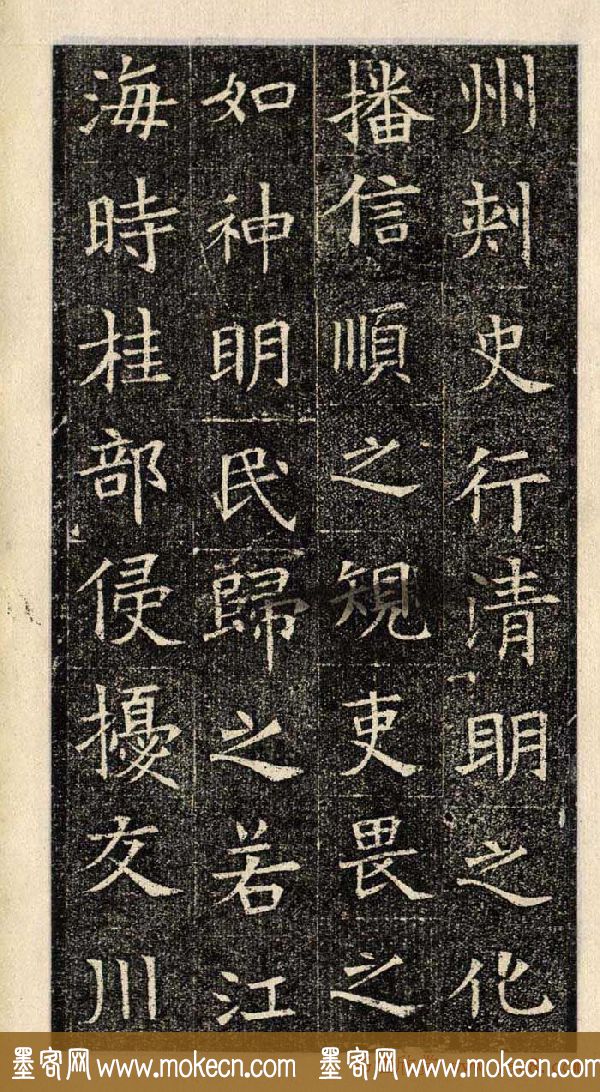 州刺史行清明之化
播信順之規吏畏之
如神明民歸之若江
海時桂部侵擾友川
墨客网 www.mokecn.com 墨客网 www.mokecn.com